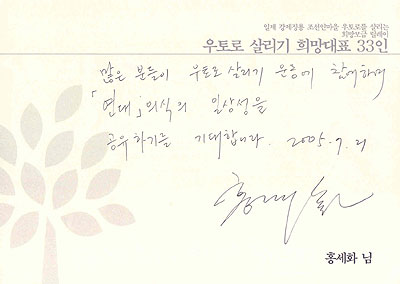 일제 강제징용 조선인마을 우토로를 살리는
희망모금 릴레이
우토로 살리기 희망대표 33인
많은 분들이 우토로 살리기 운동에 참여하며
「연대」의식의 일상성을
공유하기를 기대합니다. 2005. 7. 21
홍세화
홍세화 님